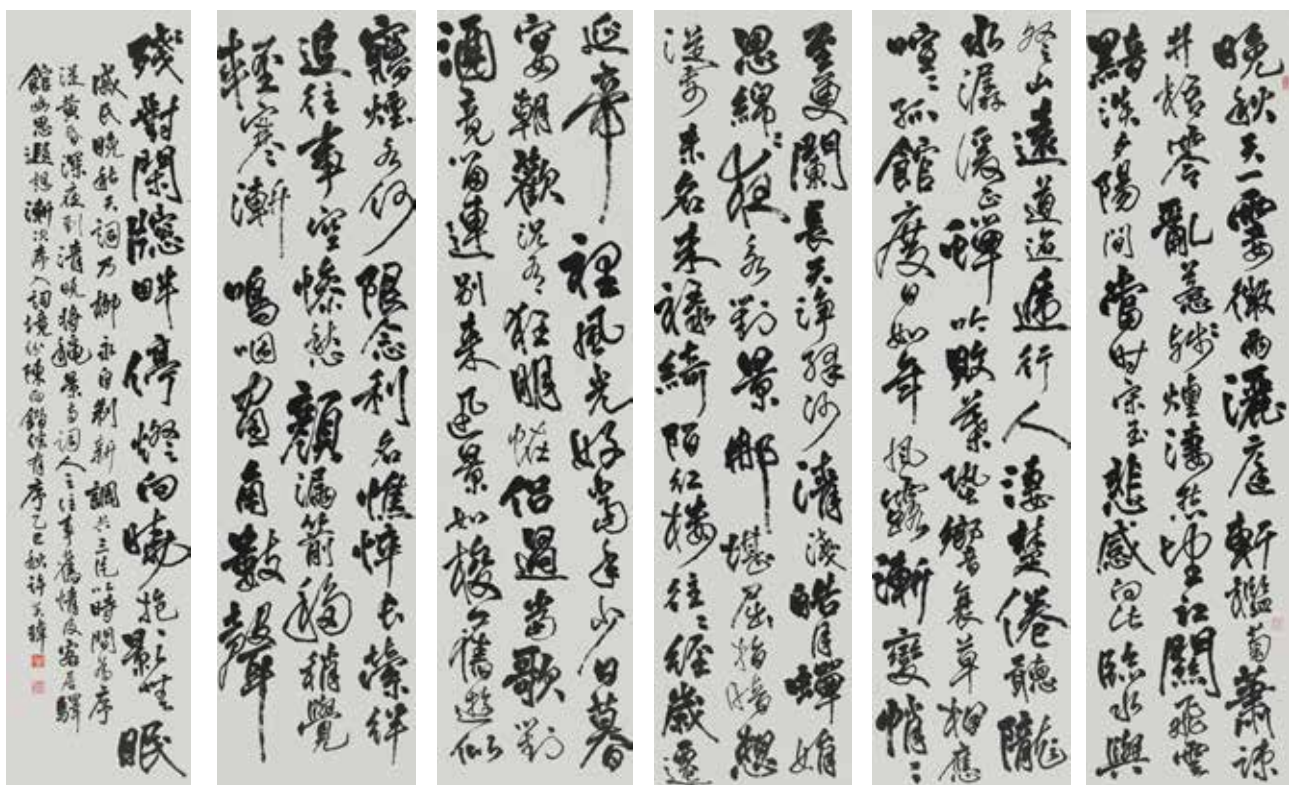 晚秋天一霎微雨灑庭軒檻菊蕭疎
井梧零亂惹殘煙淒然望江關飛雲
黯淡夕陽間當時宋玉悲感向此臨水與
登山遠道迢遞行人淒楚倦聽隴
水潺湲正蟬吟敗葉蛩響衰草相應
喧喧孤館度日如年風露漸變悄悄
至更闌長天淨絳河清淺皓月嬋娟
思綿綿夜永對景那堪屈指暗想
從前未名未祿綺陌紅樓往往經歲遷
延帝裡風光好當年少日暮
宴朝歡況有狂朋怪侶遇當歌對
酒競留連別來迅景如梭舊遊似
夢煙水何限念利名憔悴長縈絆
追往事空慘愁顏漏箭移稍覺
輕寒漸嗚咽畫角數聲
殘對閑窗畔停燈向曉抱影無眠
戚氏晚秋天詞乃柳永自創新調共三片以時間為序
從黃昏深夜到清曉將秋景與詞人之往事舊情及客居驛
館幽思遐想漸次序入詞境紛陳而鋪敘有序乙巳秋許天